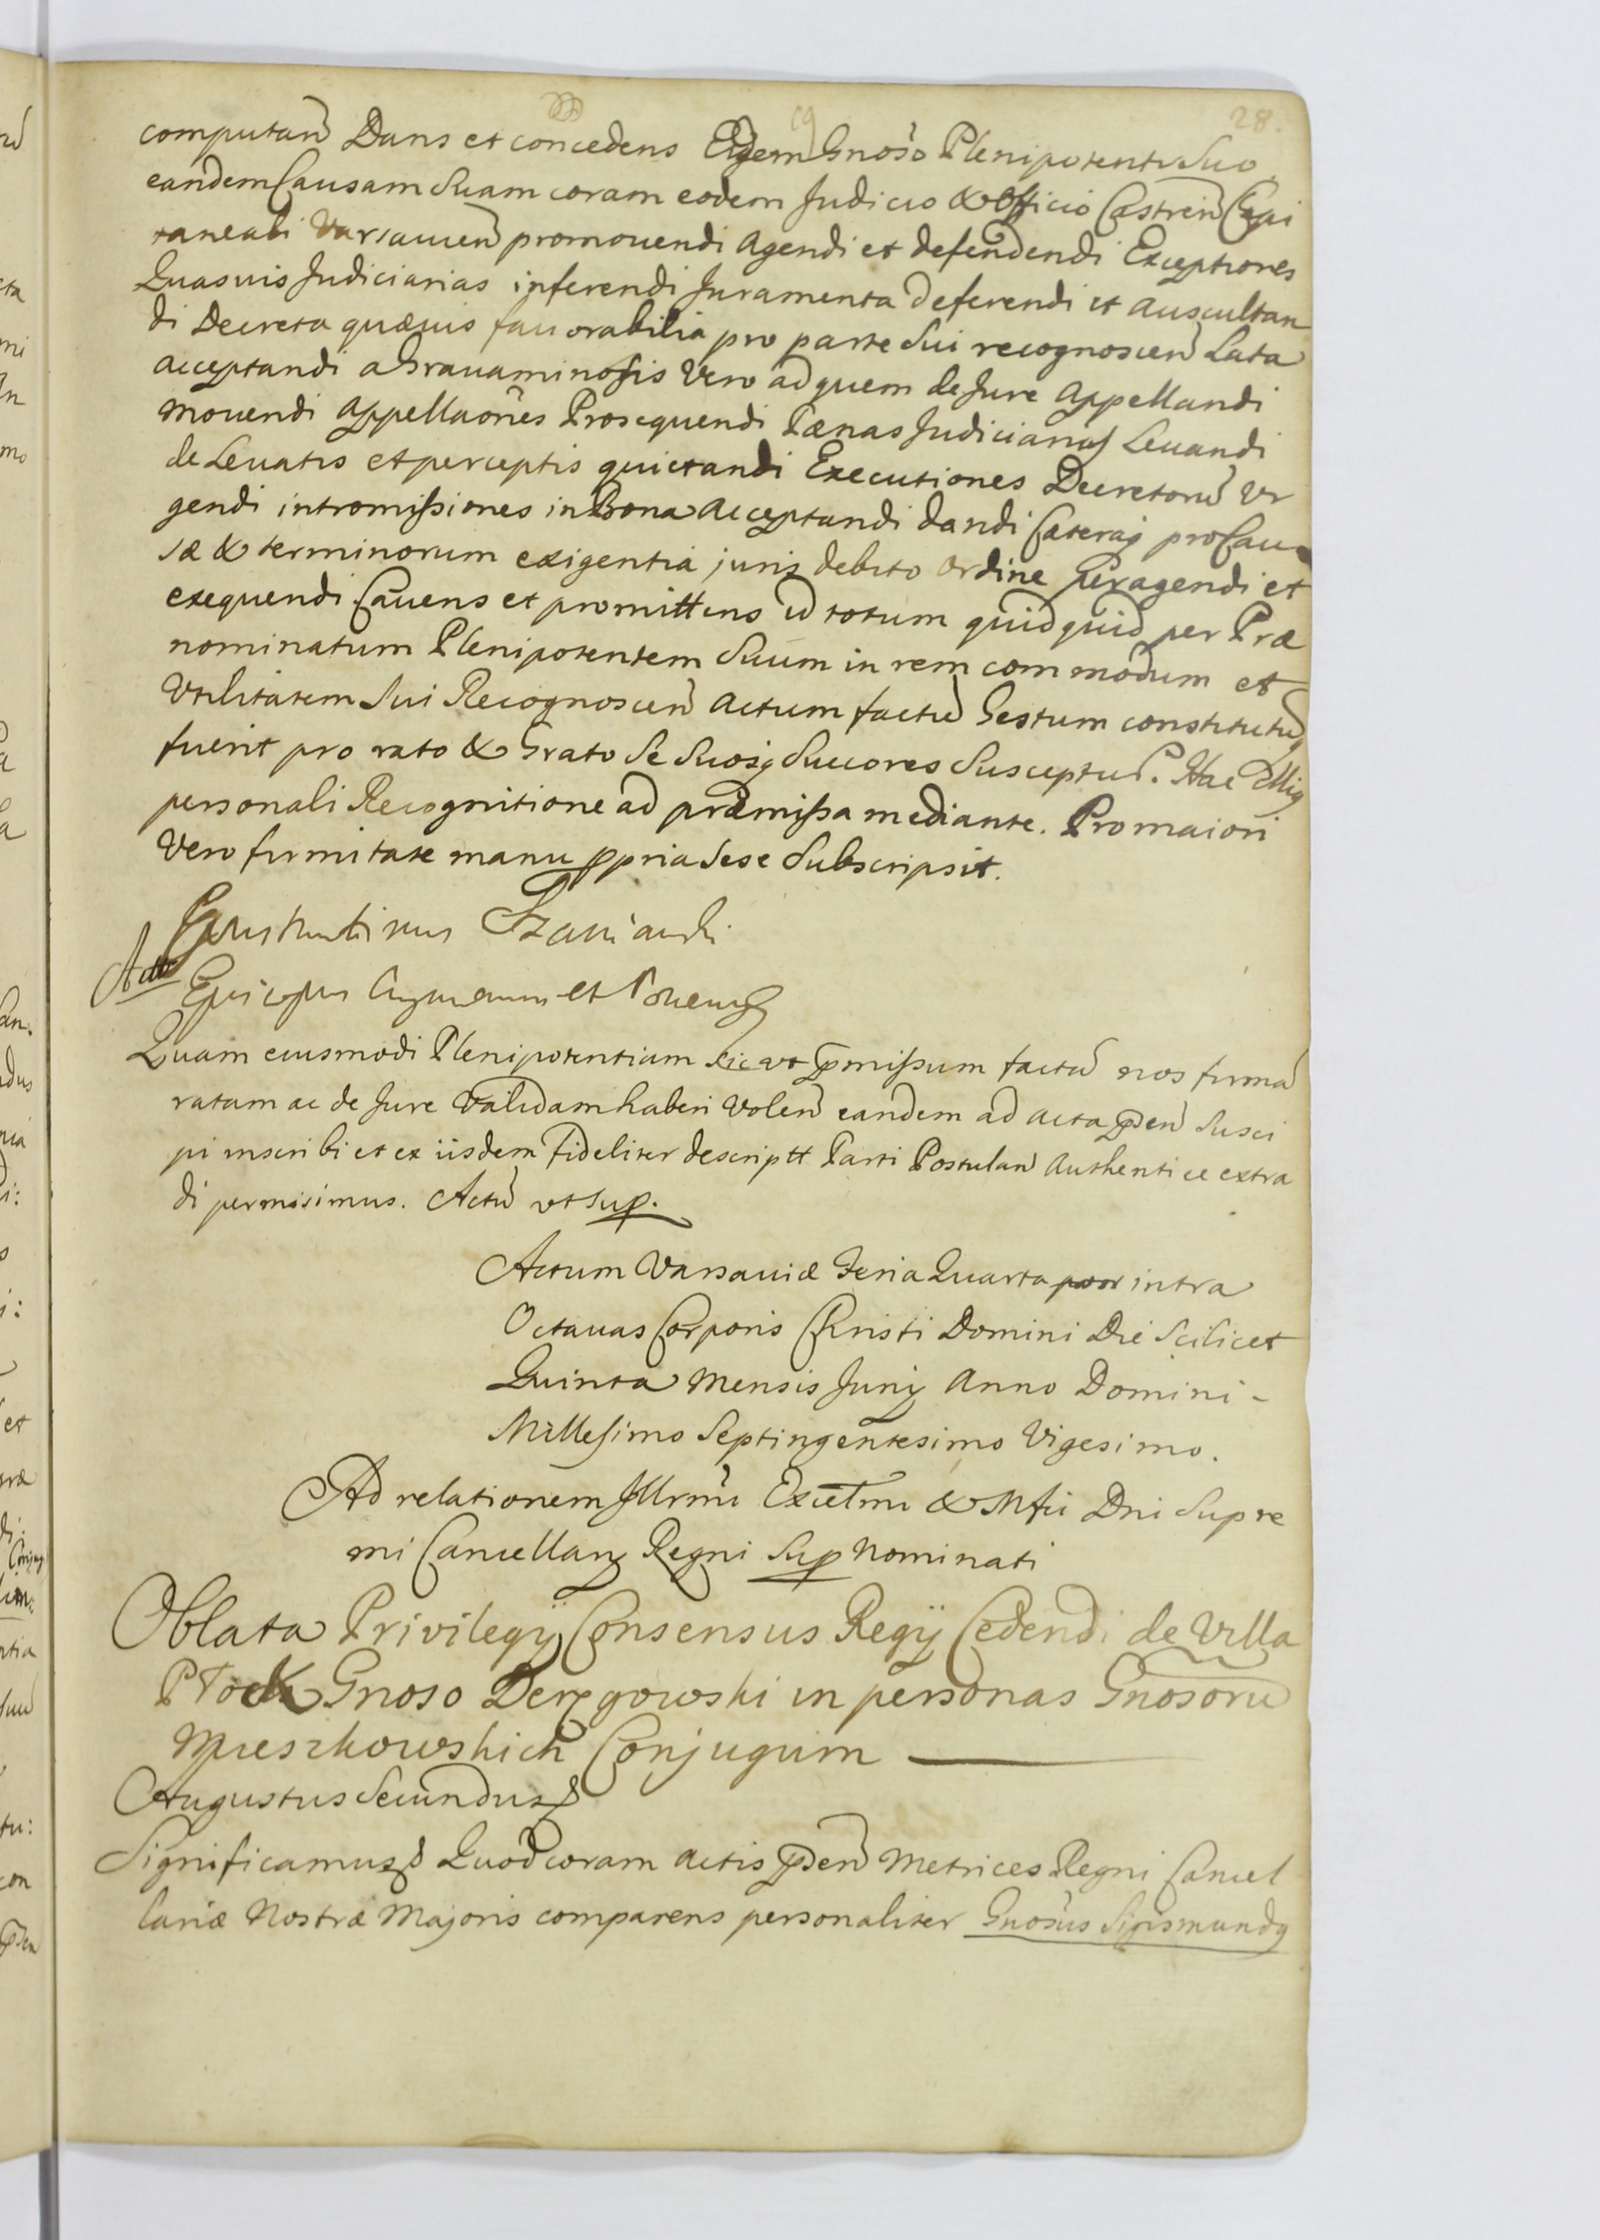 28.
computan Dans et concedens Eidem Gnoso Plenipotenti Suo
eandem Causam Suam coram eodem Judicio & Officio Castren Capi
taneali Varsauien promouendi agendi et defendendi Exceptiones
Quasuis Judiciarias inferendi Juramenta deferendi et auscultan
di Decreta quæuis fauorabilia pro parte Sui recognoscen Lata
acceptandi a Grauaminosis Vero ad quem de Jure Appellandi
mouendi Appellaones Prosequendi Pænas Judiciarias Leuandi
de Leuatis et perceptis quietandi Executiones Decretoru Vr
gendi intromissiones in Bona acceptandi dandi Cæteraq pro Cau
sæ & terminorum exigentia juris debito ordine peragendi et
exequendi Cauens et promittens id totum quidquid per Præ
nominatum Plenipotentem Suum in rem commodum et
Vtilitatem Sui Recognoscen actum factu Gestum constitutuq
fuerit pro rato & Grato Se Suosq Succores Suscepturu. Hac Illius
personali Recognitione ad præmissa mediante. Pro maiori
Vero firmitate manu ppria Sese Subscripsit.
Constantinus Szaniawski
Episcopus
Quam eiusmodi Plenipotentiam sic vt pmissum factu nos firma
ratam ac de Jure Validam haberi Volen eandem ad acta pden Susci
pi inscribi et ex iisdem fideliter descriptt Parti Postulan Authentice extra
di permisimus. Actu vt Sup.
Actum Varsauiæ Feria Quarta intra
Octauas Corporis Christi Domini Die Scilicet
Quinta Mensis Junij Anno Domini -
Millesimo Septingentesimo Vigesimo.
Ad relationem Illrmi Excelmi & Mfici Dni Supre
mi Cancellarij Regni Sup Nominati
Oblata Privilegij Consensus Regij Cedendi de Villa
Ptock Gnoso Derzgowski in personas Gnosoru
Mieszkowskich Conjugum
Augustus Secundus
Significamus Quod coram actis pden Metrices Regni Cancel
lariæ Nostræ Majoris comparens personaliter Gnosus Sigismundq